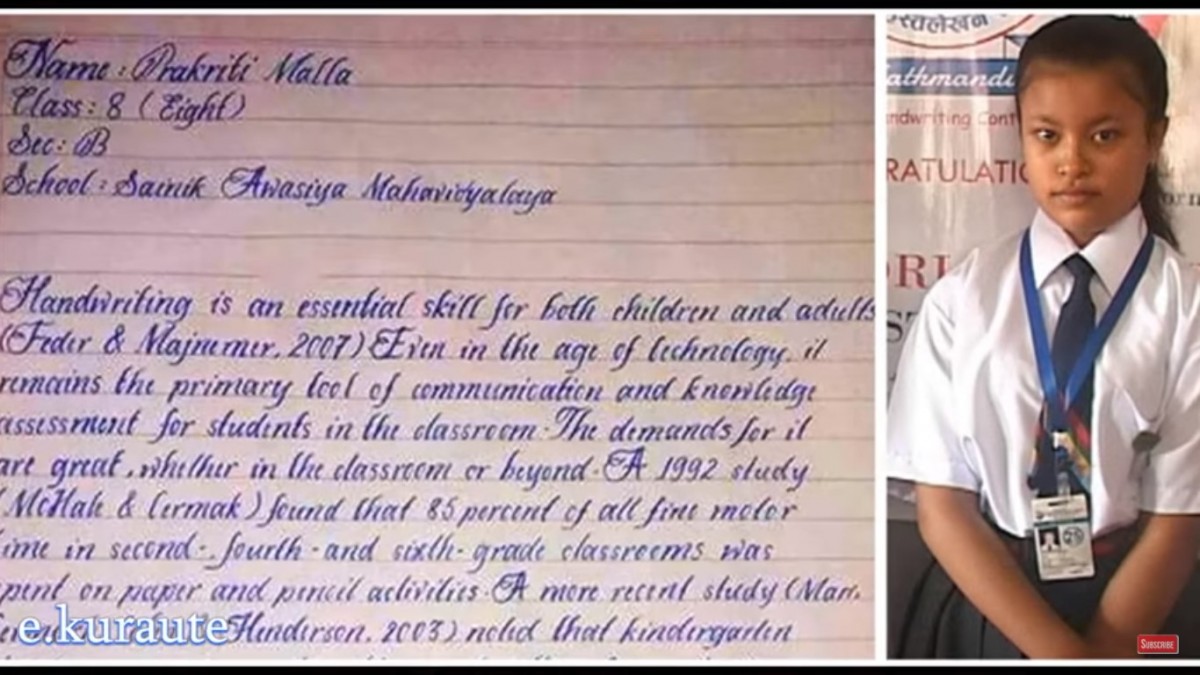 Name : Prakriti Malla
Class : 8 (Eight)
Sec : B
School : Sainik Awasiya Mahavidyalaya
Handwriting is an essential skill for both children and adults
(Feder & Majnemer, 2007) Even in the age of technology, it
remains the primary tool of communication and knowledge
assessment for students in the classroom. The demands for it
are great, whether in the classroom or beyond. A 1992 study
(McHale & Cermak) found that 85 percent of all fine motor
time in second-, fourth - and sixth- grade classrooms was
spent on paper and pencil activities. A more recent study (Marr,
Henderson, 2003) noted that kindergarten
e.kuraute
स्तलेखन
athmandu
ndwriting Cont
RATULATI
SUBSCRIBE